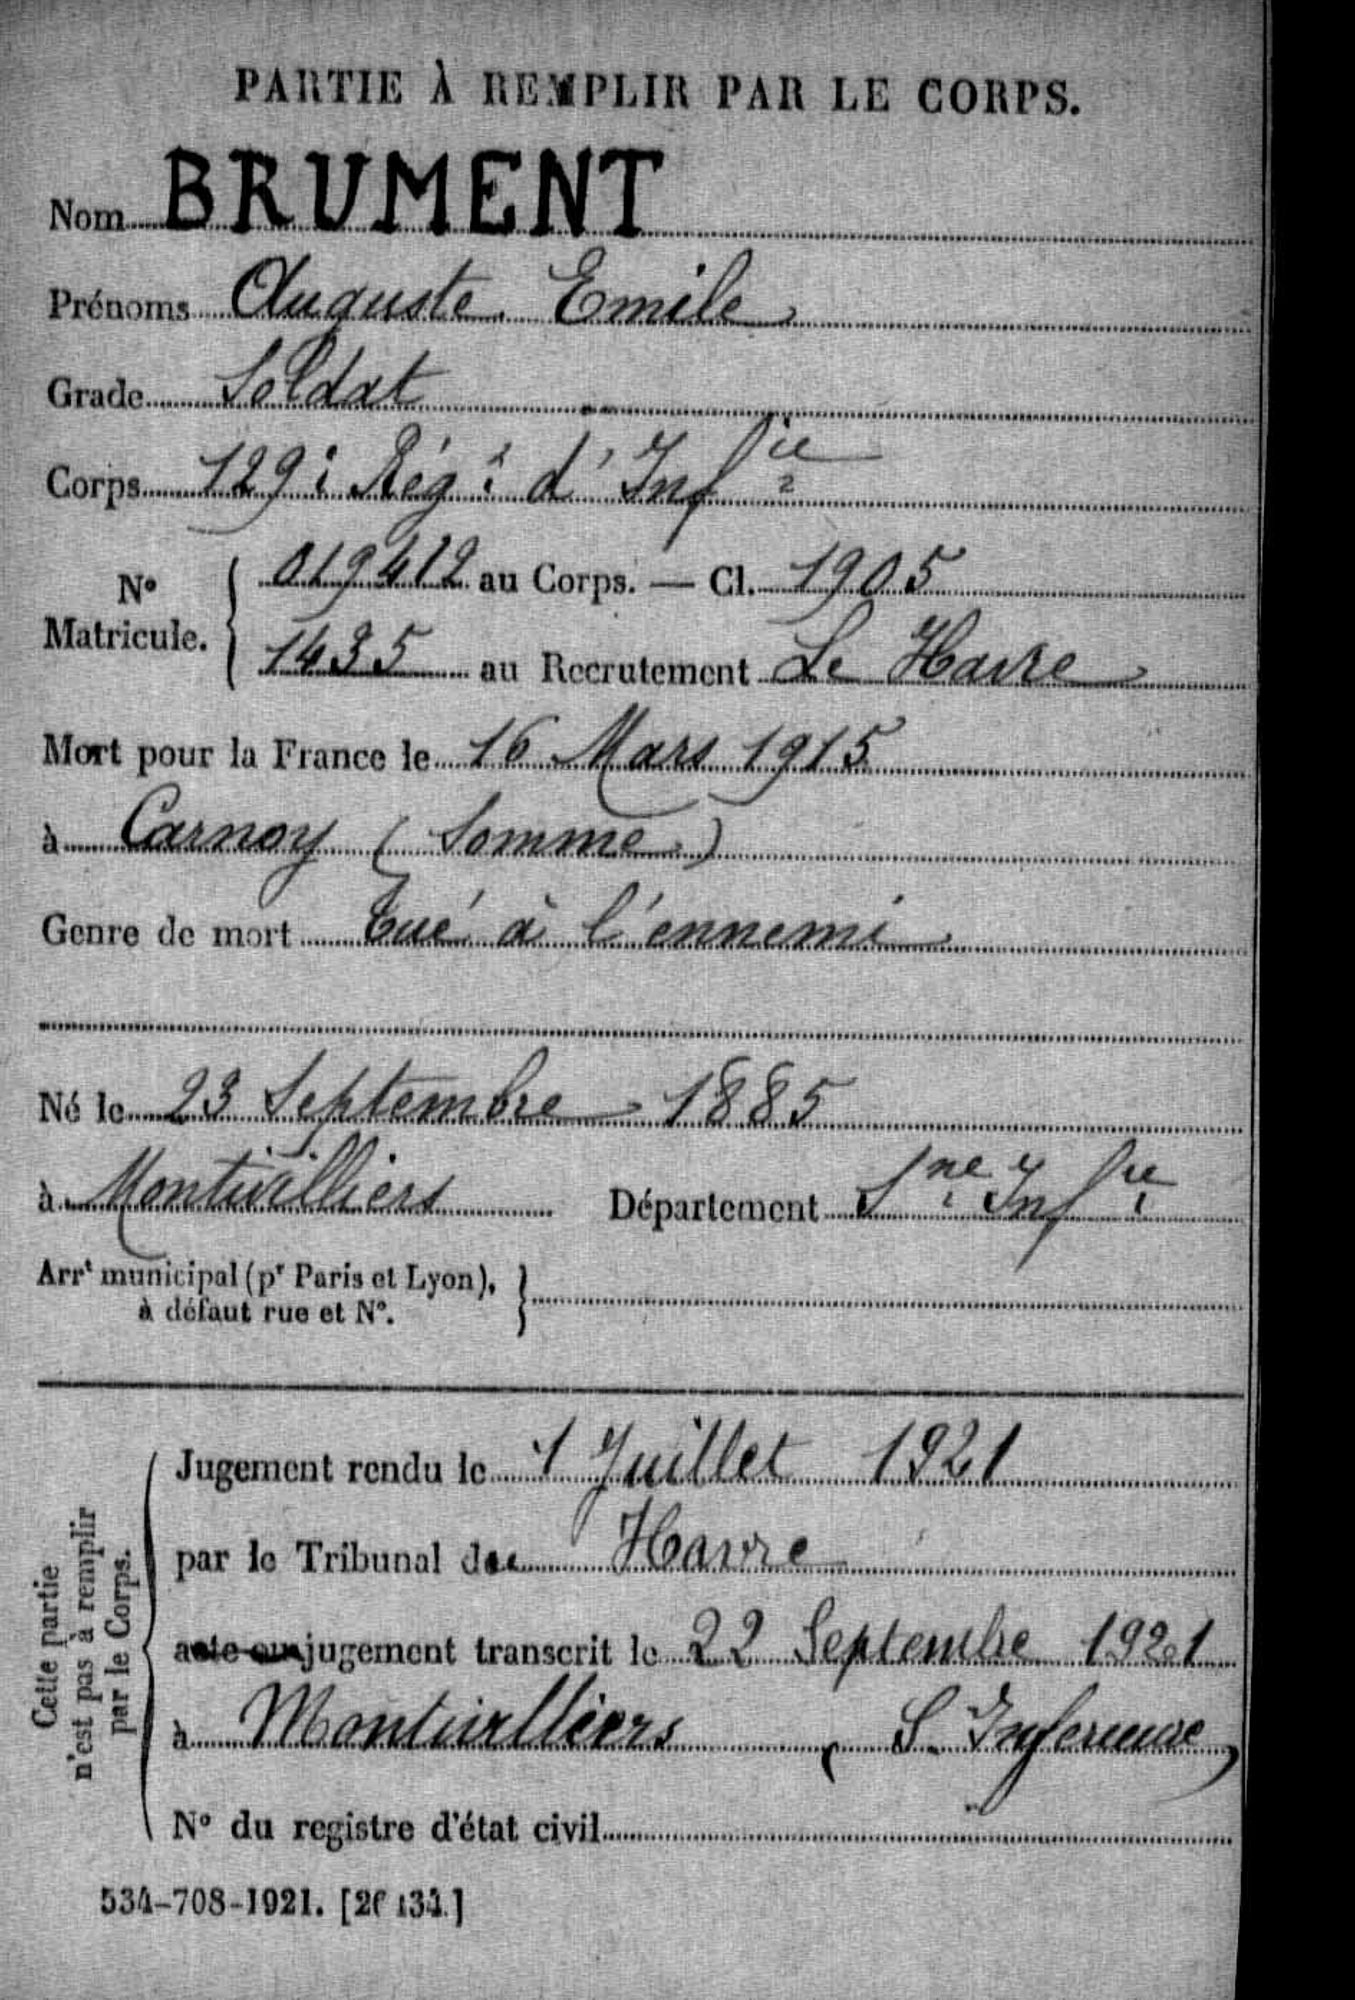 PARTIE À REMPLIR PAR LE CORPS.
Nom BRUMENT
Prénoms Auguste Emile
Grade Soldat
Corps 129e Régt d'Infie
No Matricule. { 019412 au Corps. — Cl. 1905
1435 au Recrutement Le Havre
Mort pour la France le 16 Mars 1915
à Carnoy (Somme)
Genre de mort tué à l'ennemi
Né le 23 Septembre 1885
à Montivilliers Département Sne Infre
Arrt municipal (pr Paris et Lyon), à défaut rue et No. }
Cette partie n'est pas à remplir par le Corps.
Jugement rendu le 1 Juillet 1921
par le Tribunal du Havre
acte ou jugement transcrit le 22 Septembre 1921
à Montivilliers (S. Inferieure)
No du registre d'état civil
534-708-1921. [26434.]